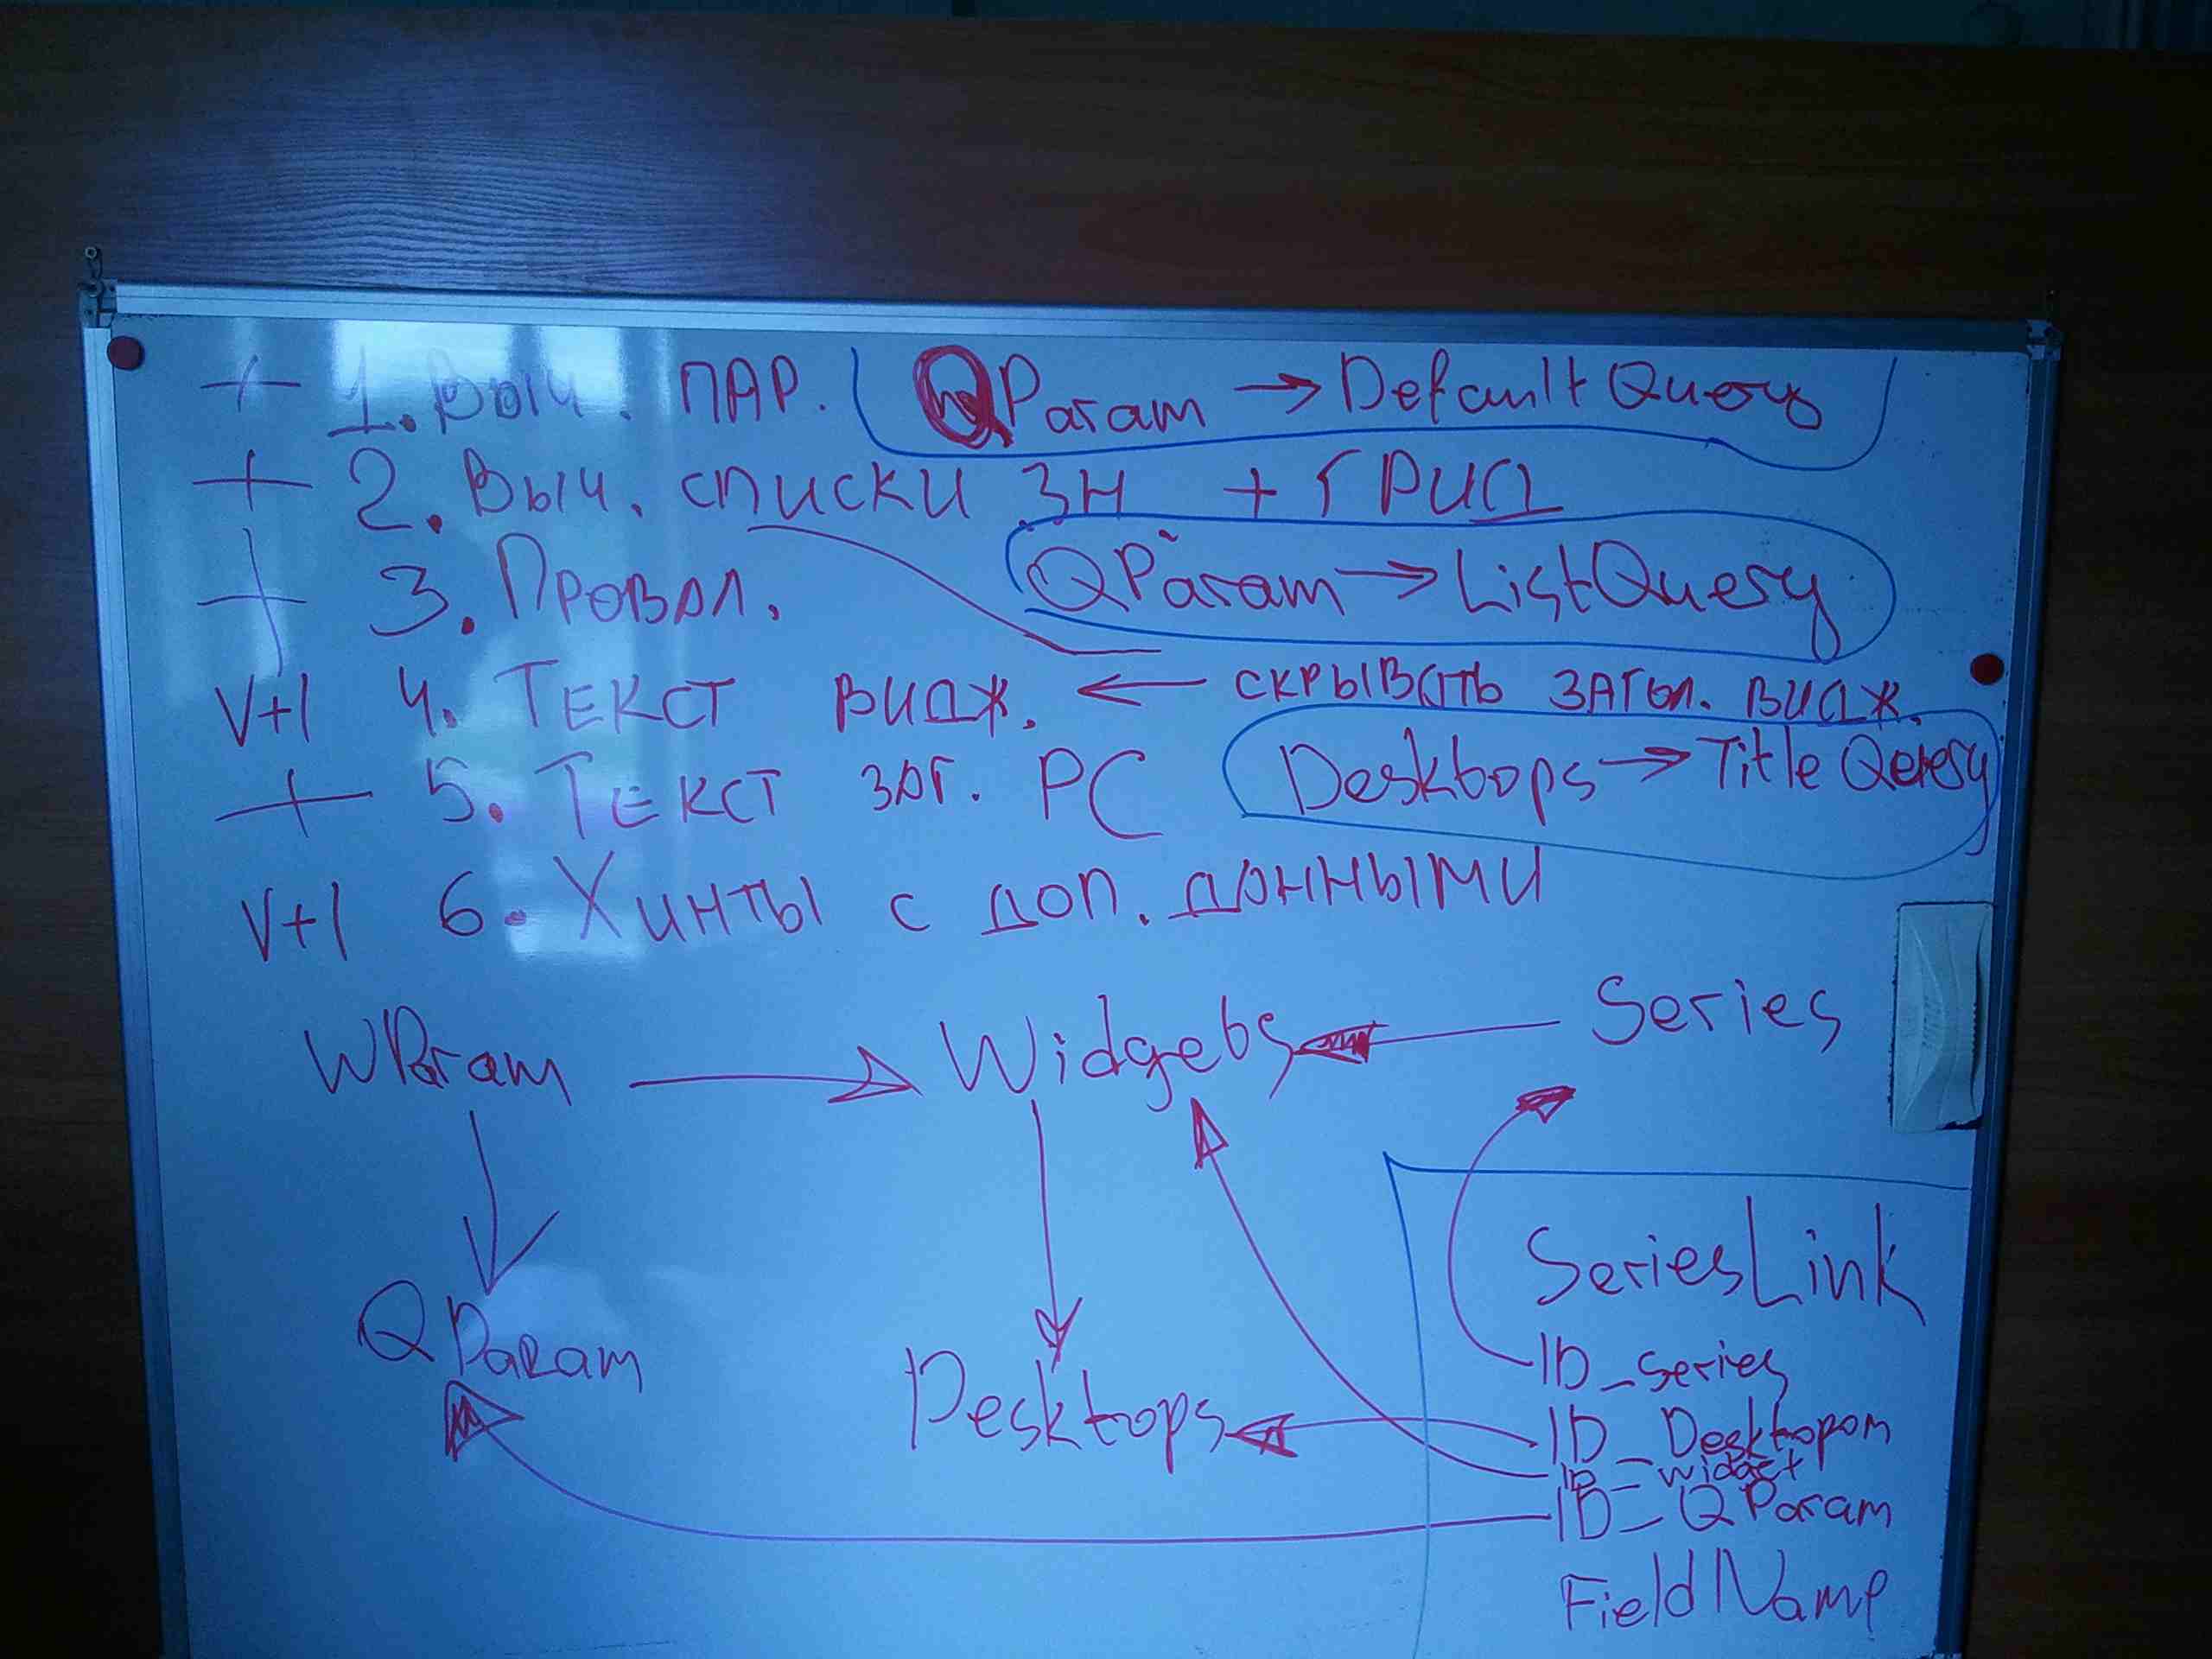 + 1. Выч. ПАР. QParam → DefaultQuery
+ 2. Выч. списки ЗН + ГРИД
QParam → ListQuery
+ 3. Провал.
V+1 4. ТЕКСТ ВИДЖ. ← СКРЫВАТЬ ЗАГОЛ. ВИДЖ.
+ 5. ТЕКСТ ЗАГ. РС Desktops → Title Qerery
V+1 6. Хинты с доп. данными
WParam → Widgets ← Series
QParam
Desktops
SeriesLink
ID_Series
ID_Desktopom
ID_Widget
ID_QParam
FieldName